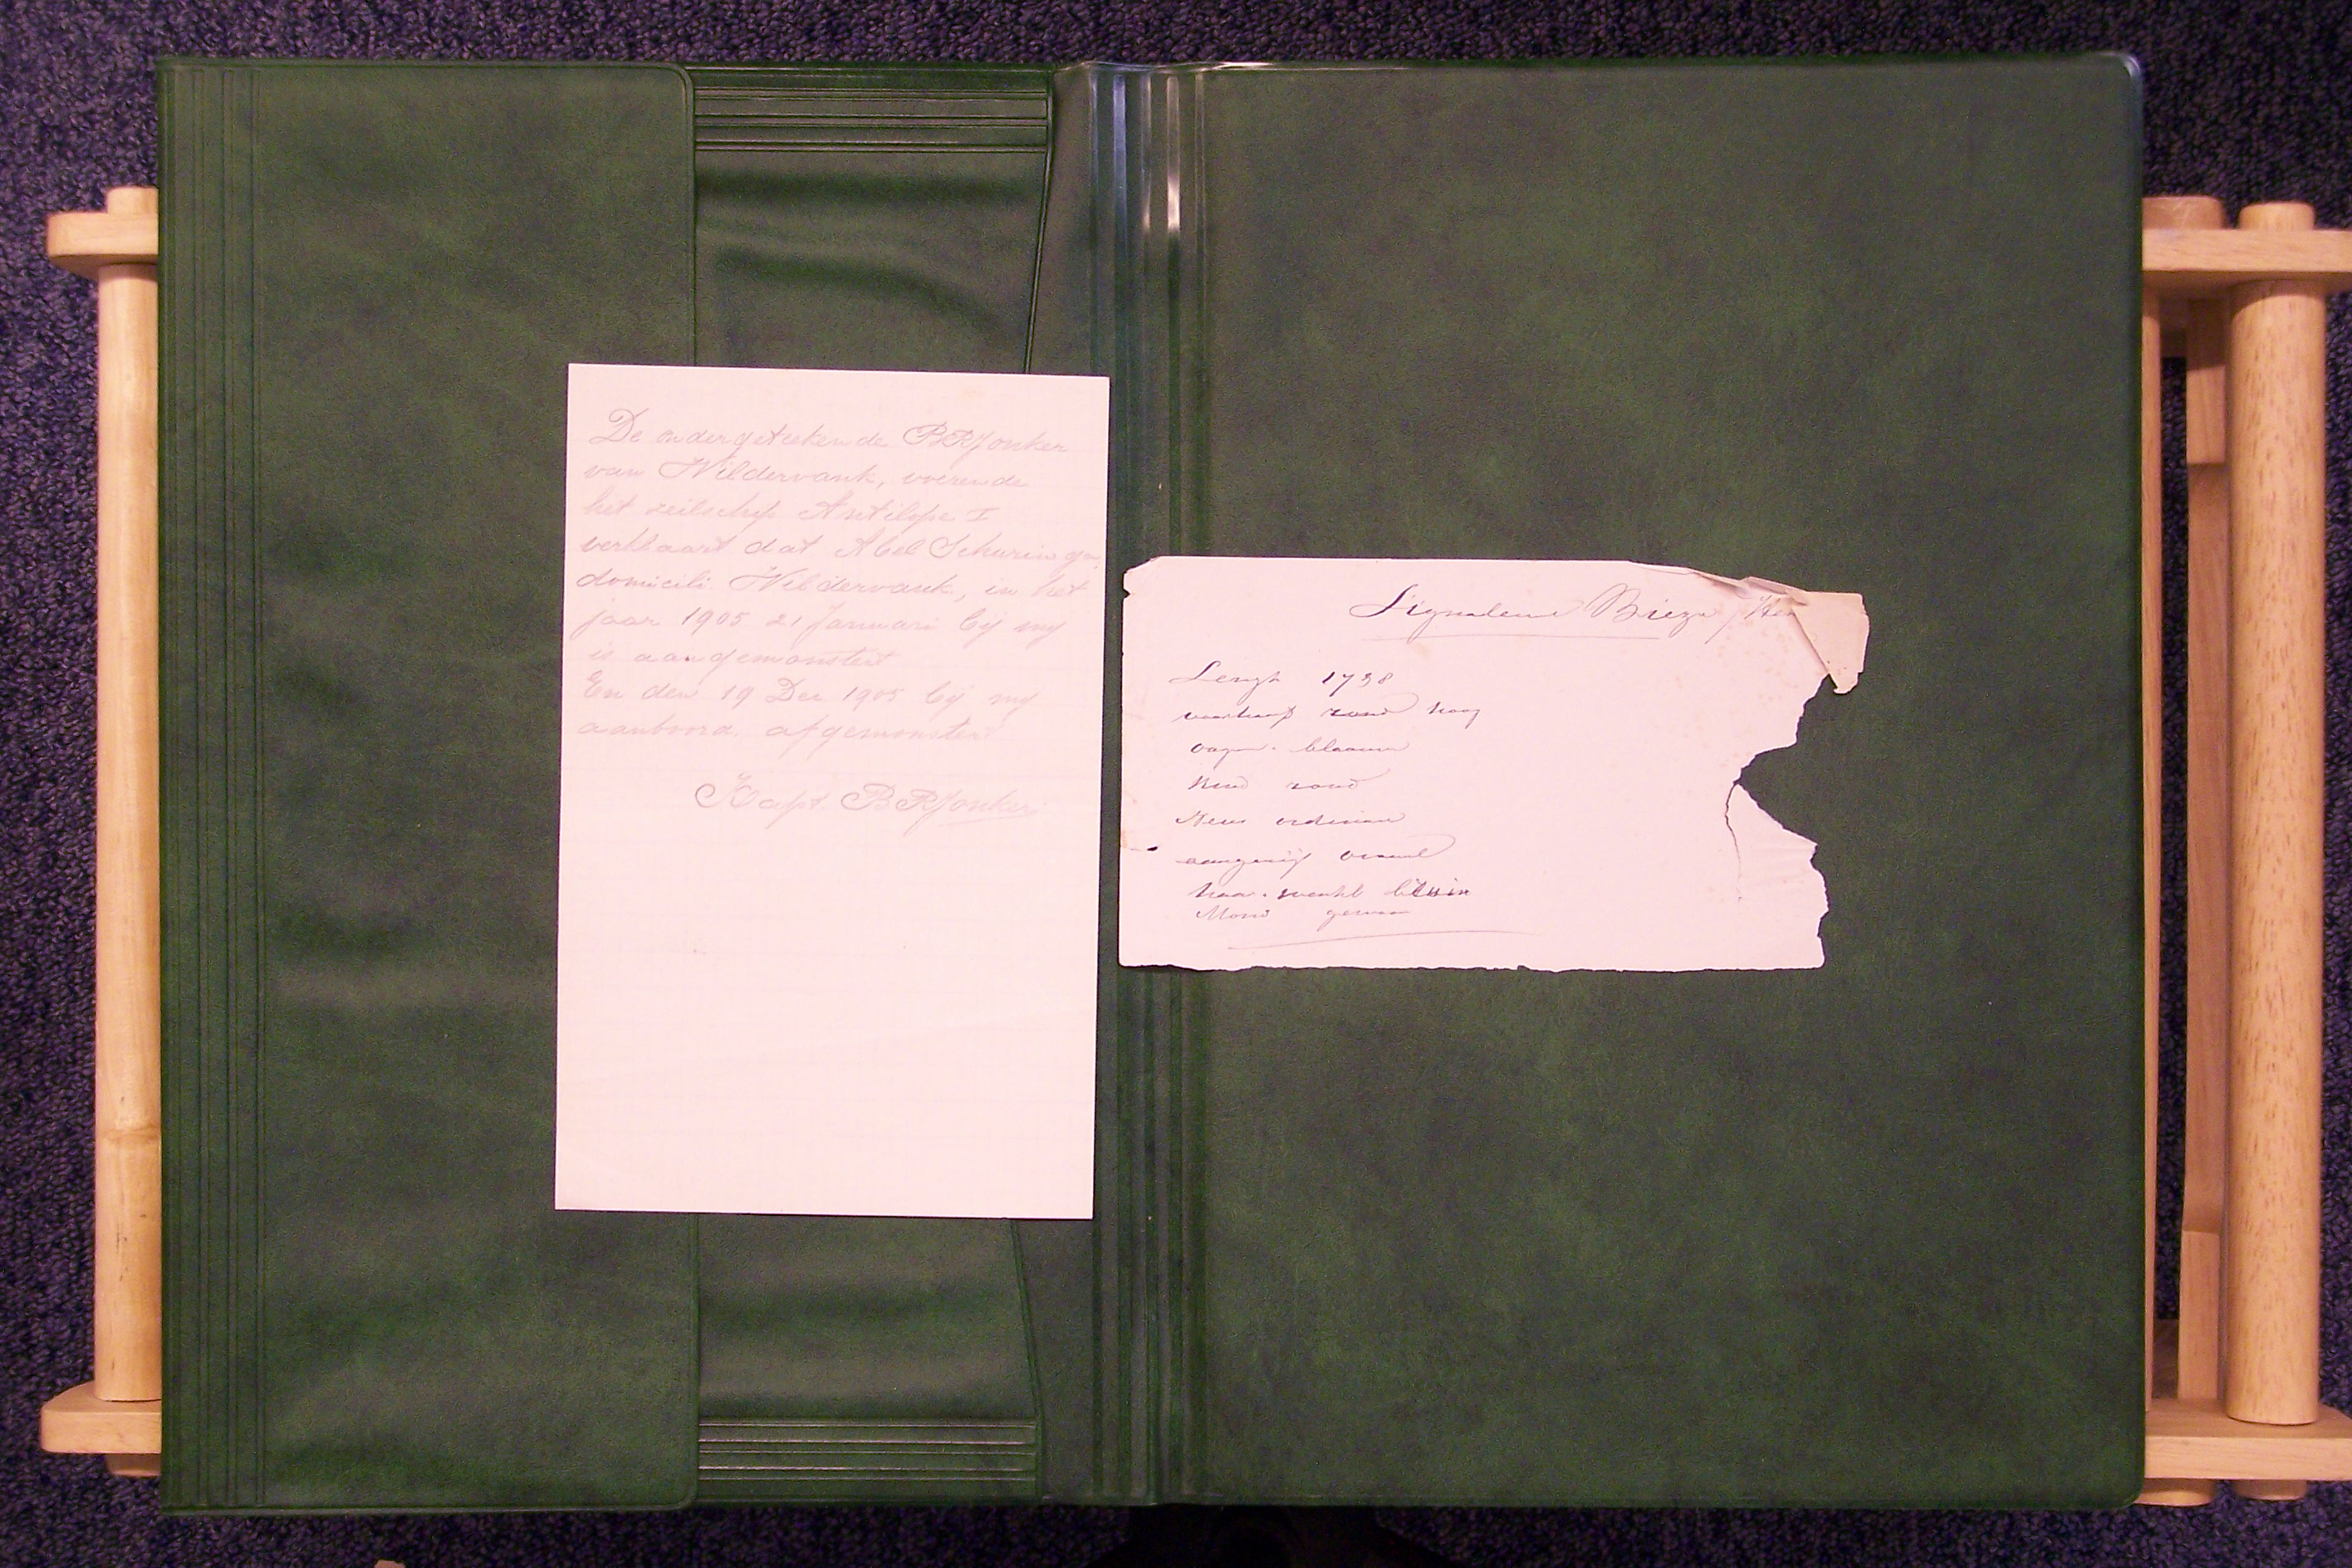 De ondergeteekende BRJonker
van Wildervank, voerende
het zeilschip Antilope I
verklaart dat Abel Schuringa,
domicili Wildervank, in het
jaar 1905 21 Januari bij mij
is aangemonstert
En den 19 Dec 1905 bij mij
aanboord. afgemonstert
Kapt. BRJonker.
Signaleme
Lengh 1738
voorhoofd rond hoog
oogen. blaauw
Kind rond
Neus ordinair
aangezigt ovaal
haar. wenkb bruin
Mond gewoon